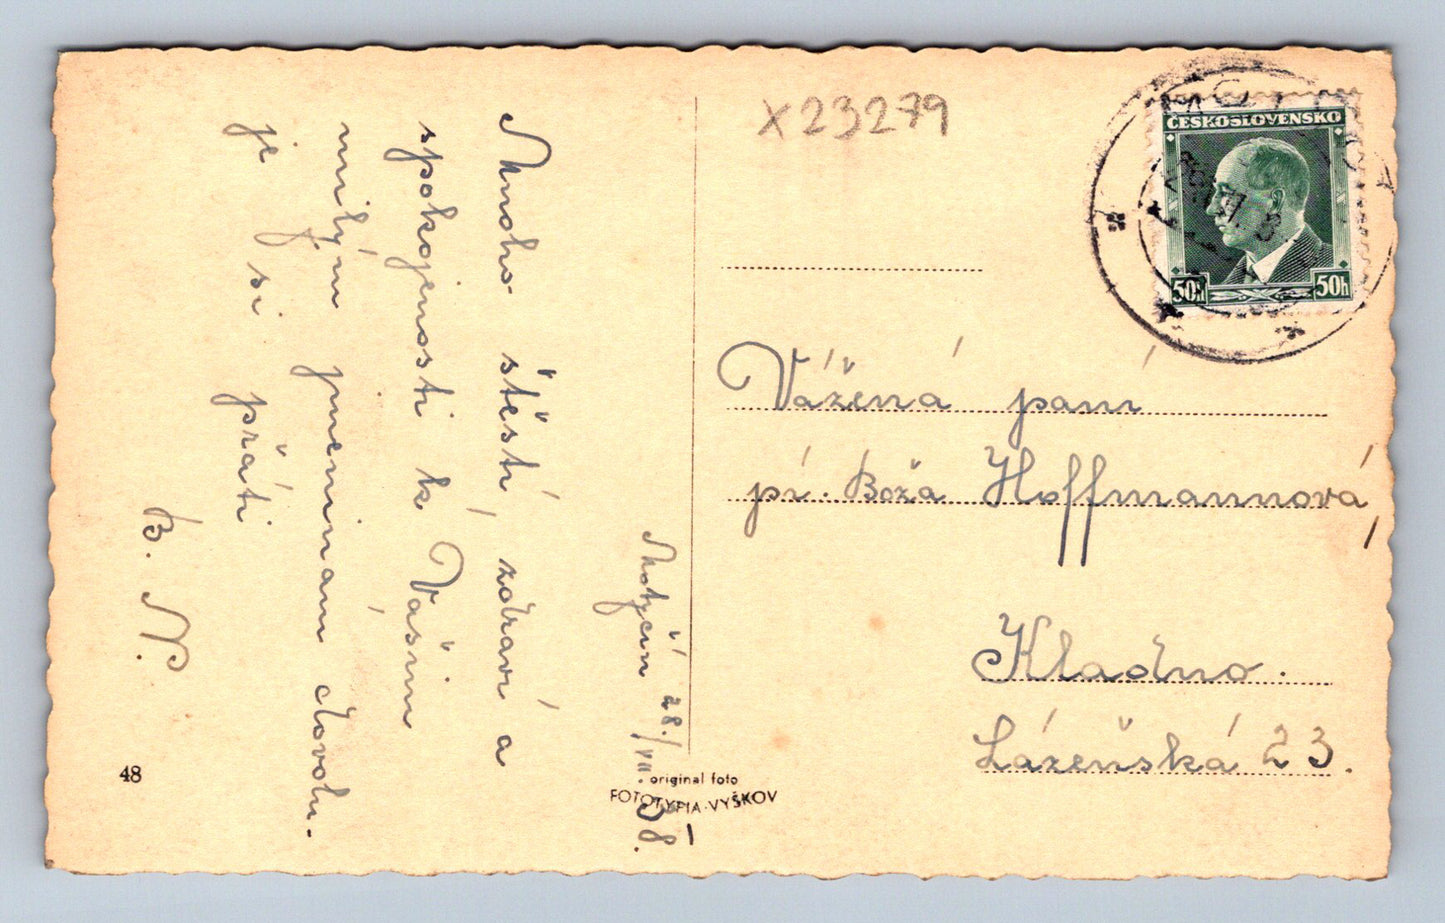 Motyčín 28./VII. 38.
Mnoho štěstí, zdraví a
spokojenosti k Vašim
milým jmeninám
je si přáti
B. N.
48
original foto
FOTOTYPIA-VYŠKOV
X23279
ČESKOSLOVENSKO
50h 50h
Vážená paní
pí. Boža Hoffmannová,
Kladno.
Lázeňská 23.